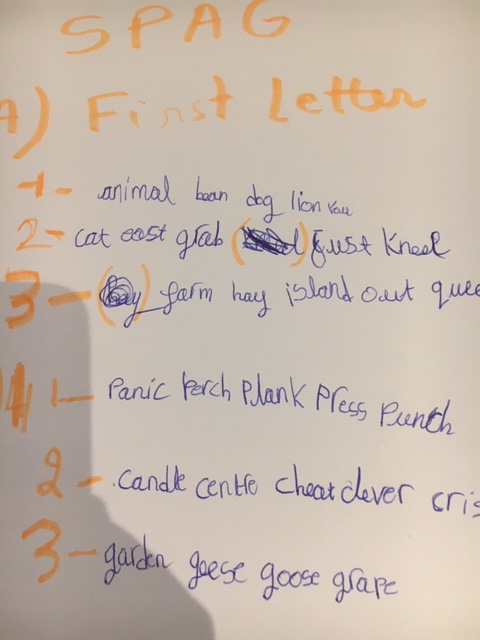 SPAG
A) First Letter
1- animal bean dog lion
2- cat east grab ( ) just kneel
3- ( ) farm hay island out
1- Panic Perch Plank Press Punch
2- candle centre cheat clever
3- garden geese goose grape